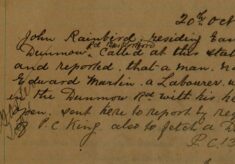 20th Oct
John Rainbird, residing
Dunmow. Called at this Stat
and reported, that a man. na
Edward Martin. a Labourer. w
in the Dunmow Rd. with his he
open. sent here to report by req
by P.C King also to fetch a D
P.C.13